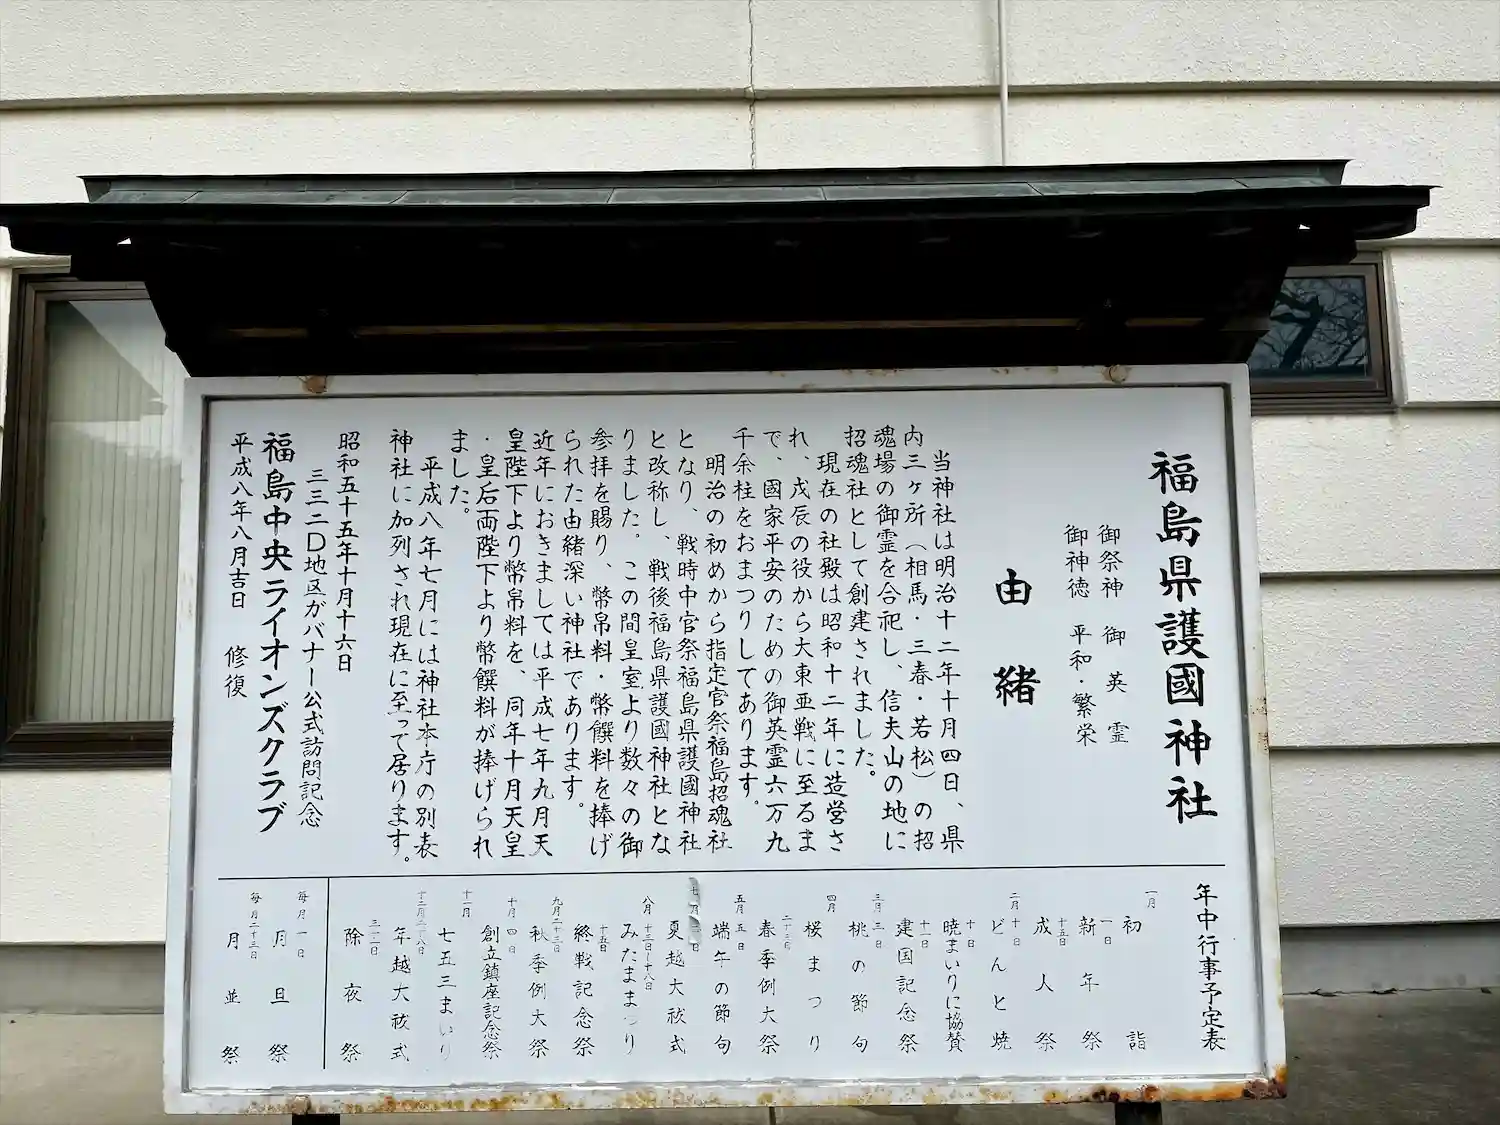 福島県護國神社
御祭神 御英霊
御神徳 平和・繁栄
由緒
当神社は明治十二年十月四日、県
内三ヶ所（相馬・三春・若松）の招
魂場の御霊を合祀し、信夫山の地に
招魂社として創建されました。
現在の社殿は昭和十二年に造営さ
れ、戊辰の役から大東亜戦に至るま
で、國家平安のための御英霊六万九
千余柱をおまつりしてあります。
明治の初めから指定官祭福島招魂社
となり、戦時中官祭福島県護國神社
と改称し、戦後福島県護國神社とな
りました。この間皇室より数々の御
参拝を賜り、幣帛料・幣饌料を捧げ
られた由緒深い神社であります。
近年におきましては平成七年九月天
皇陛下より幣帛料を、同年十月天皇
・皇后両陛下より幣饌料が捧げられ
ました。
平成八年七月には神社本庁の別表
神社に加列され現在に至って居ります。
昭和五十五年十月十六日
三三二D地区ガバナー公式訪問記念
福島中央ライオンズクラブ
平成八年八月吉日 修復
年中行事予定表
一月 初詣
一日 新年祭
十五日 成人祭
二月 十日 どんと焼
十日 暁まいりに協賛
十一日 建国記念祭
三月 三日 桃の節句
四月 桜まつり
二十三日 春季例大祭
五月 五日 端午の節句
七月 日 夏越大祓式
八月 十三日〜十八日 みたままつり
十五日 終戦記念祭
九月二十三日 秋季例大祭
十月 四日 創立鎮座記念祭
十一月 七五三まいり
十二月二十八日 年越大祓式
三十一日 除夜祭
毎月 一日 月旦祭
毎月二十三日 月並祭